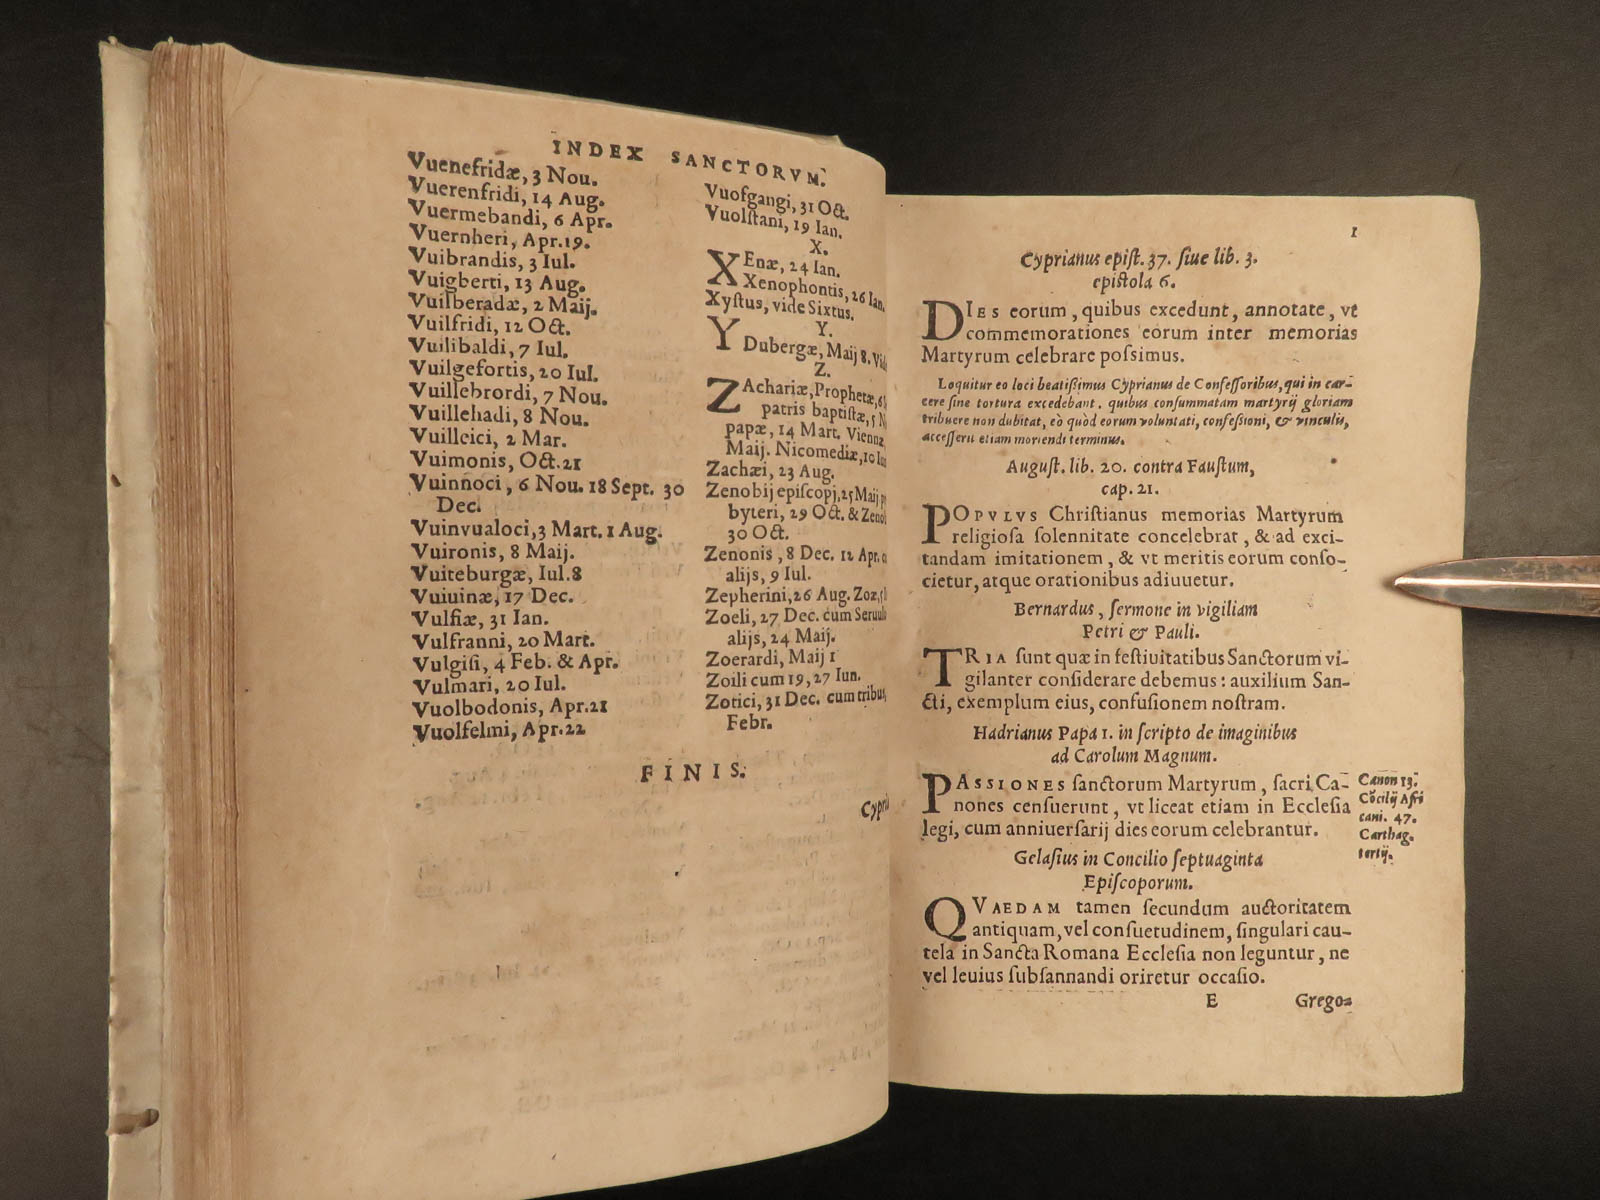 INDEX SANCTORVM.
Vuenefridæ, 3 Nou.
Vuerenfridi, 14 Aug.
Vuermebandi, 6 Apr.
Vuernheri, Apr.19.
Vuibrandis, 3 Iul.
Vuigberti, 13 Aug.
Vuilberadæ, 2 Maij.
Vuilfridi, 12 Oct.
Vuilibaldi, 7 Iul.
Vuilgefortis, 20 Iul.
Vuillebrordi, 7 Nou.
Vuillehadi, 8 Nou.
Vuilleici, 2 Mar.
Vuimonis, Oct.21
Vuinnoci, 6 Nou. 18 Sept. 30
Dec.
Vuinvualoci,3 Mart. 1 Aug.
Vuironis, 8 Maij.
Vuiteburgæ, Iul.8
Vuiuinæ, 17 Dec.
Vulfiæ, 31 Ian.
Vulfranni, 20 Mart.
Vulgiſi, 4 Feb. & Apr.
Vulmari, 20 Iul.
Vuolbodonis, Apr.21
Vuolfelmi, Apr.22
Vuofgangi, 31 Oct.
Vuolſtani, 19 Ian.
X.
XEnæ, 24 Ian.
Xenophontis, 26 Ian.
Xyſtus, vide Sixtus.
Y.
YDubergæ, Maij 8.
Z.
ZAchariæ, Prophetæ, 6
patris baptiſtæ, 5 N
papæ, 14 Mart. Viennæ
Maij. Nicomediæ, 10
Zachæi, 23 Aug.
Zenobij epiſcopi, 25 Maij
byteri, 29 Oct. & Zeno
30 Oct.
Zenonis, 8 Dec. 12 Apr.
alijs, 9 Iul.
Zepherini, 26 Aug. Zoæ,
Zoeli, 27 Dec. cum
alijs, 24 Maij.
Zoerardi, Maij 1
Zoili cum 19, 27 Iun.
Zotici, 31 Dec. cum tribus,
Febr.
FINIS.
Cypri
1
Cyprianus epiſt. 37. ſiue lib. 3.
epiſtola 6.
DIES eorum, quibus excedunt, annotate, vt
commemorationes eorum inter memorias
Martyrum celebrare poſsimus.
Loquitur eo loci beatiſſimus Cyprianus de Confeſſoribus, qui in car-
cere ſine tortura excedebant. quibus conſummatam martyrij gloriam
tribuere non dubitat, eò quòd eorum voluntati, confeſſioni, & vinculis,
acceſſerit etiam moriendi terminus.
Auguſt. lib. 20. contra Fauſtum,
cap. 21.
POPVLVS Chriſtianus memorias Martyrum
religioſa ſolennitate concelebrat, & ad exci-
tandam imitationem, & vt meritis eorum conſo-
cietur, atque orationibus adiuuetur.
Bernardus, ſermone in vigiliam
Petri & Pauli.
TRIA ſunt quæ in feſtiuitatibus Sanctorum vi-
gilanter conſiderare debemus: auxilium San-
cti, exemplum eius, confuſionem noſtram.
Hadrianus Papa 1. in ſcripto de imaginibus
ad Carolum Magnum.
PASSIONES ſanctorum Martyrum, ſacri Ca-
nones cenſuerunt, vt liceat etiam in Eccleſia
legi, cum anniuerſarij dies eorum celebrantur.
Canon 13.
Cōcilij Afri
cani. 47.
Carthag.
tertij.
Gelaſius in Concilio ſeptuaginta
Epiſcoporum.
QVAEDAM tamen ſecundum auctoritatem
antiquam, vel conſuetudinem, ſingulari cau-
tela in Sancta Romana Eccleſia non leguntur, ne
vel leuius ſubſannandi oriretur occaſio.
E
Grego-